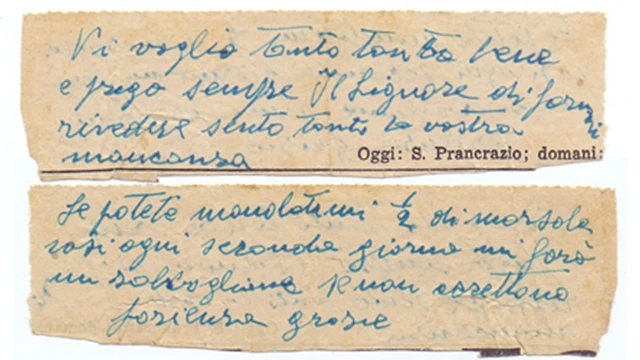 Vi voglio tanto tanto bene
e prego sempre Il Signore di farmi
rivedere sento tanto la vostra
mancanza
Oggi: S. Prancrazio; domani:
Se potete mandatemi ½ di marsala
così ogni seconda giorno mi farò
un e non
pasienza grasie